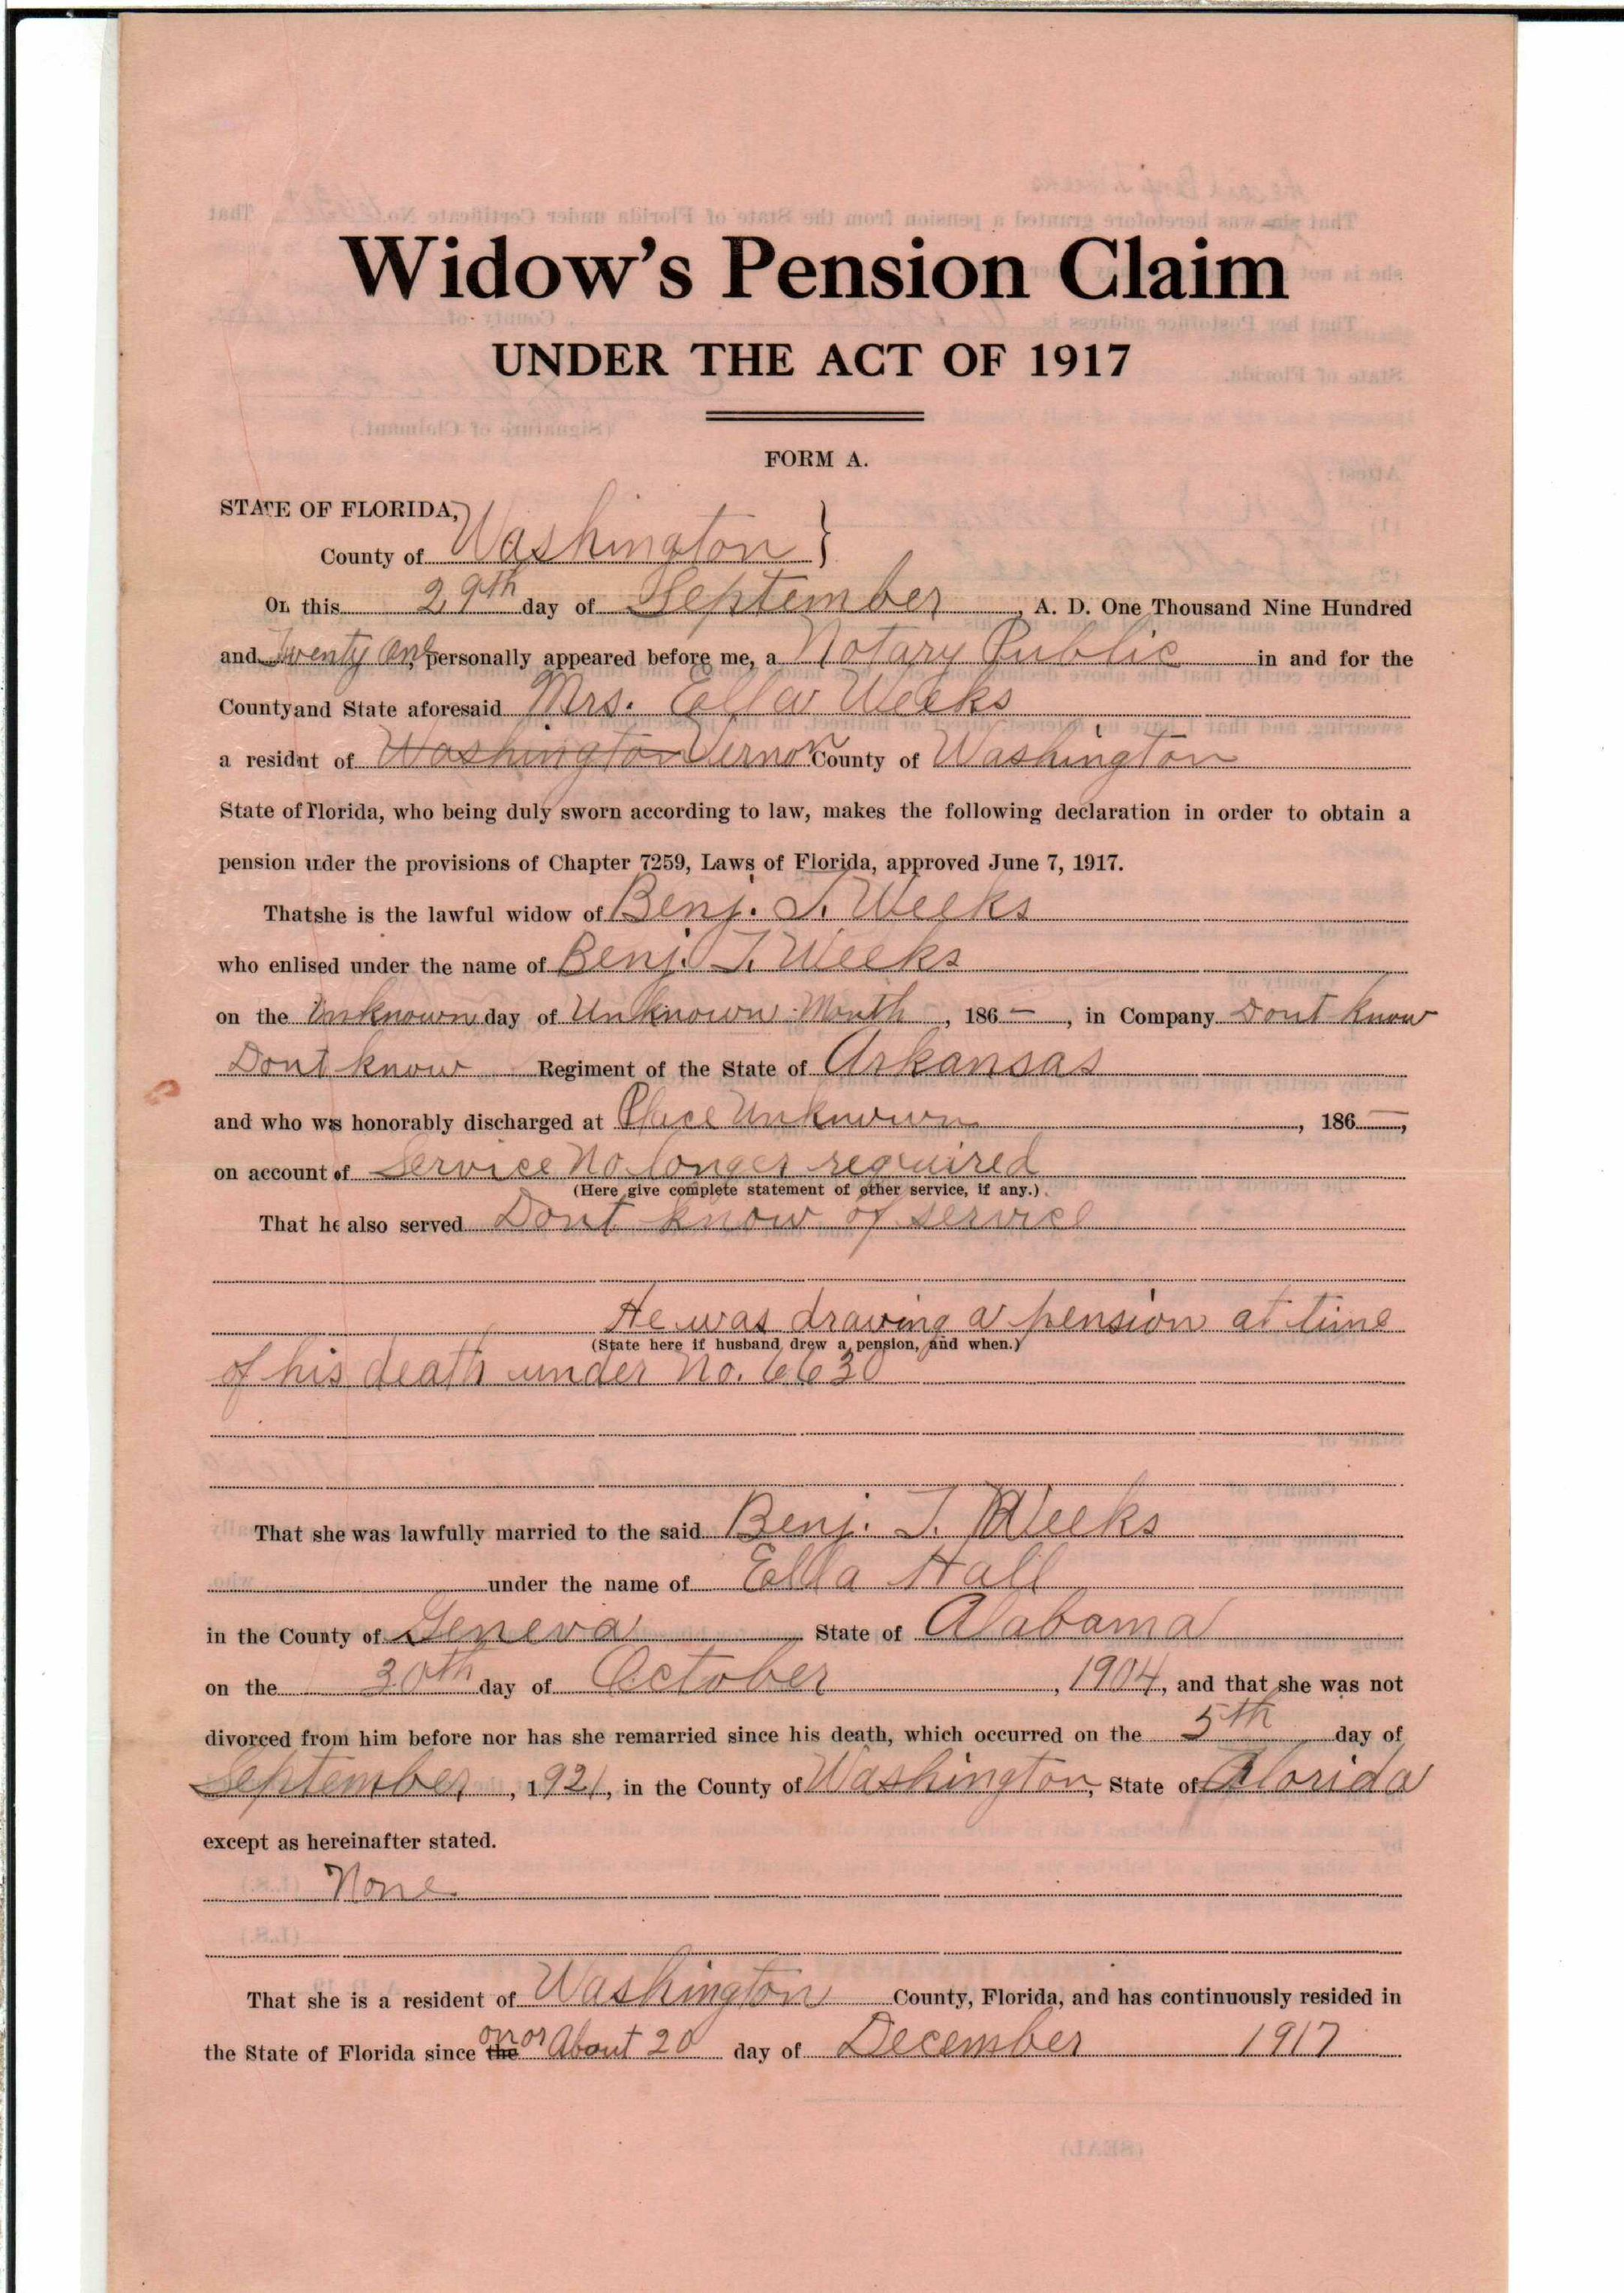 Widow's Pension Claim
UNDER THE ACT OF 1917
FORM A.
STATE OF FLORIDA,
County of Washington }
On this 29th day of September, A. D. One Thousand Nine Hundred
and Twenty One, personally appeared before me, a Notary Public in and for the
County and State aforesaid Mrs. Ella Weeks
a residnt of Washington Vernon County of Washington
State of Florida, who being duly sworn according to law, makes the following declaration in order to obtain a
pension under the provisions of Chapter 7259, Laws of Florida, approved June 7, 1917.
That she is the lawful widow of Benj. T. Weeks
who enlised under the name of Benj. T. Weeks
on the Unknown day of Unknown Month, 186—, in Company Dont know
Dont know Regiment of the State of Arkansas
and who was honorably discharged at Place Unknown, 186—,
on account of Service No longer required
(Here give complete statement of other service, if any.)
That he also served Dont know of service
He was drawing a pension at time
(State here if husband drew a pension, and when.)
of his death under No. 6630
That she was lawfully married to the said Benj. T. Weeks
under the name of Ella Hall
in the County of Geneva State of Alabama
on the 30th day of October, 1904, and that she was not
divorced from him before nor has she remarried since his death, which occurred on the 5th day of
September, 1921, in the County of Washington, State of Florida
except as hereinafter stated.
None
That she is a resident of Washington County, Florida, and has continuously resided in
the State of Florida since the on or About 20 day of December 1917